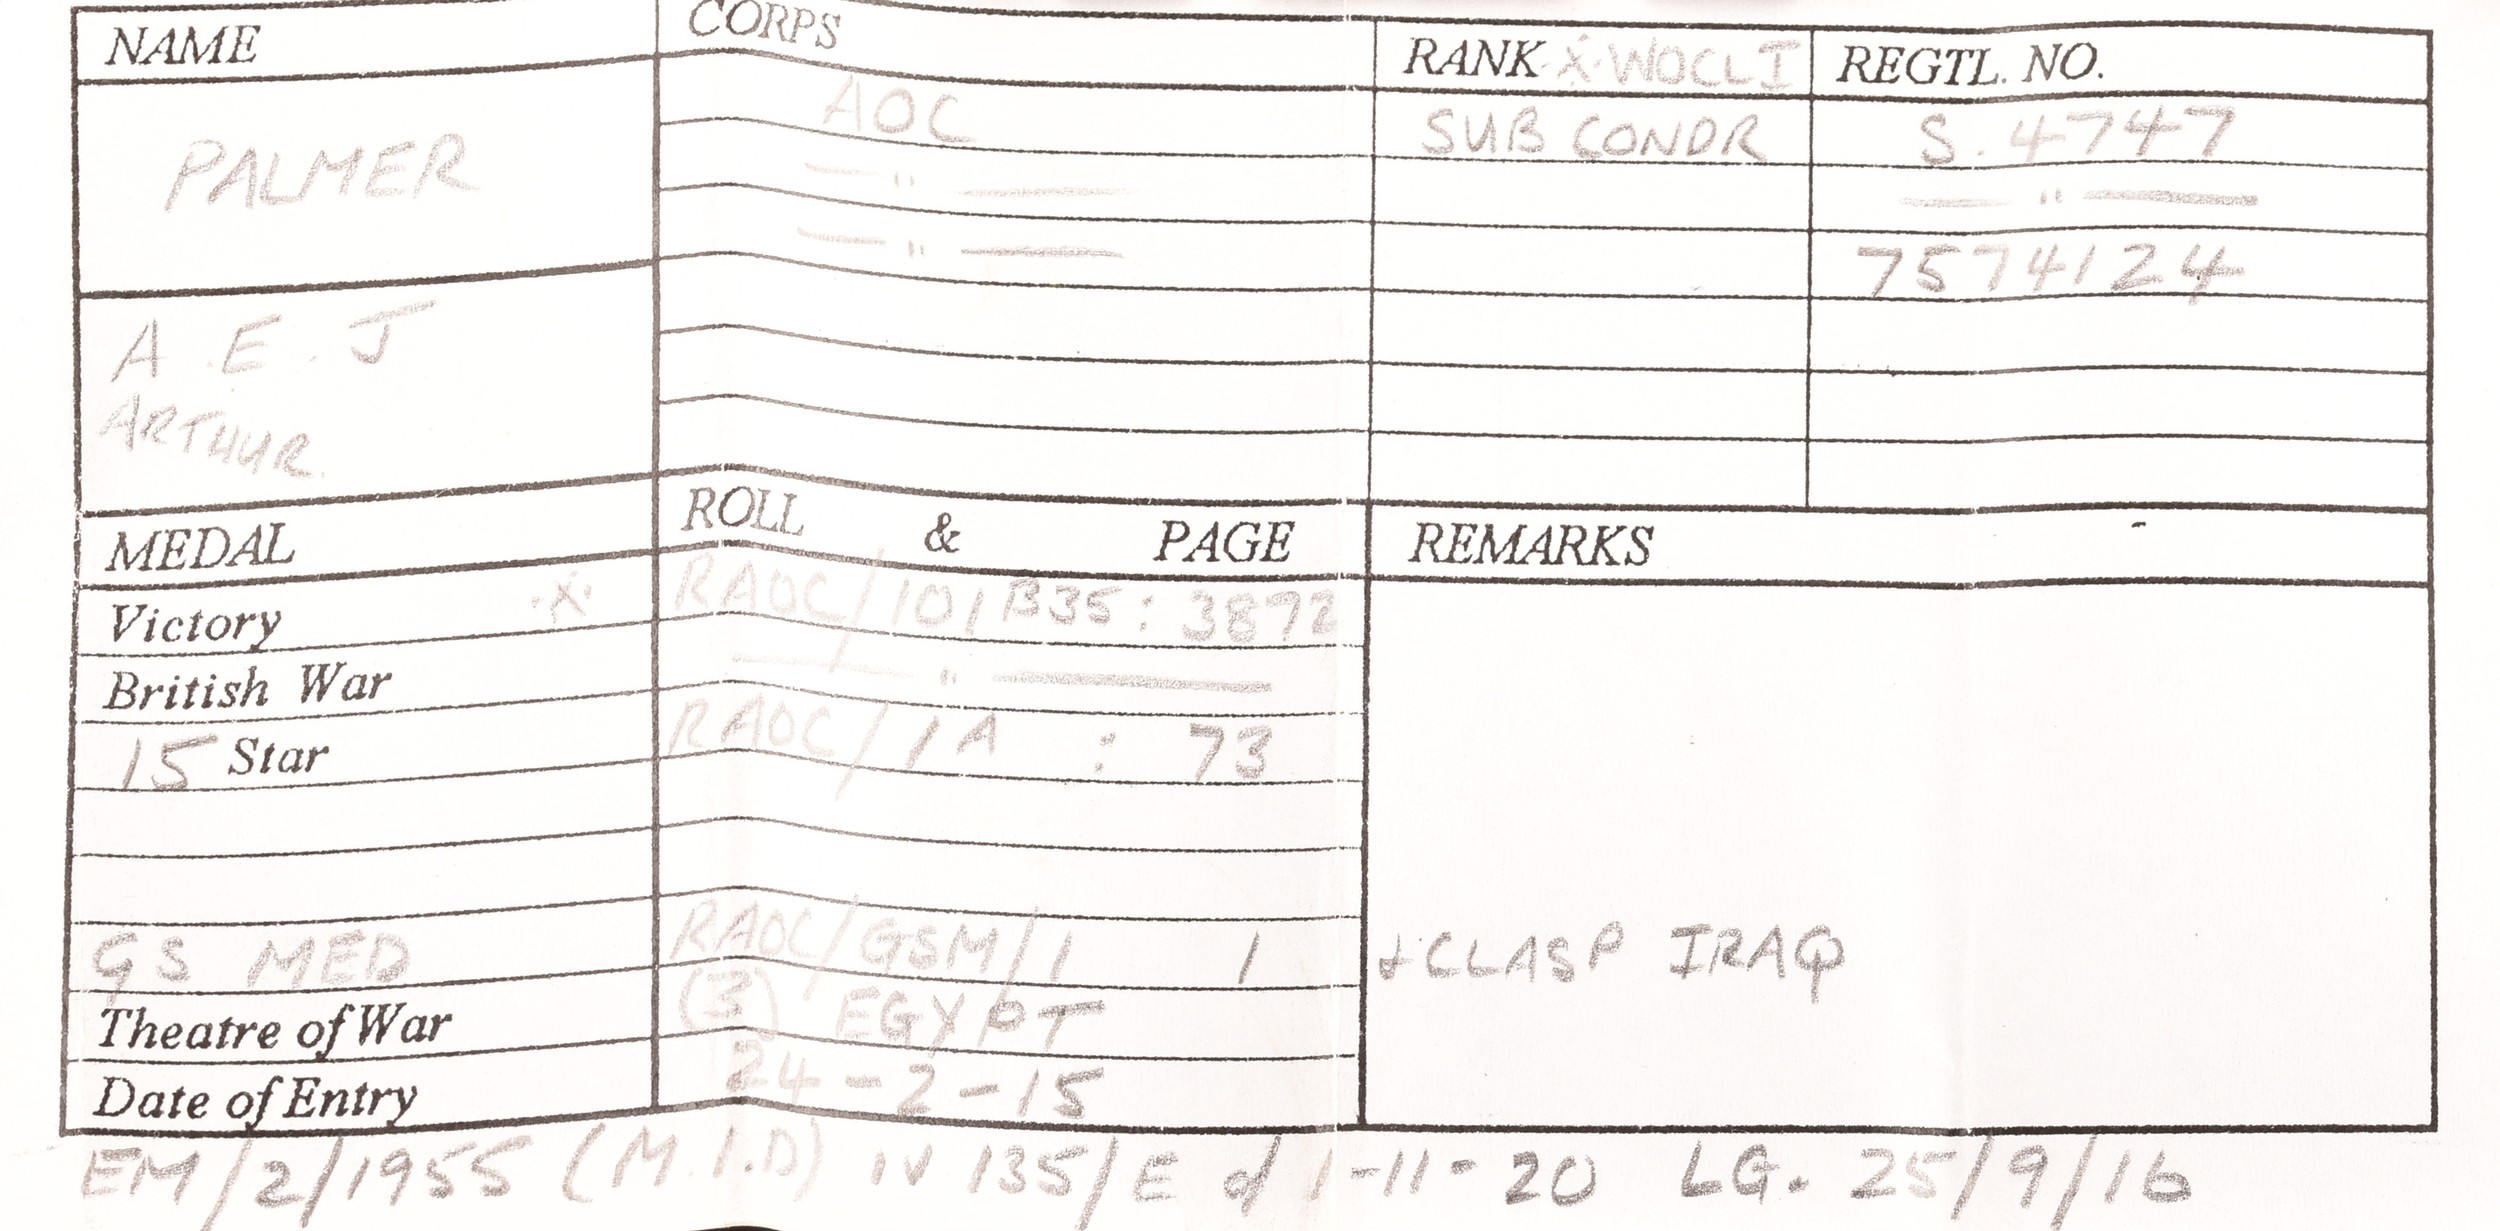 NAME CORPS RANK X WOCLI REGTL. NO.
PALMER AOC SUB CONDR S. 4747
— " — — " —
— " — 7574124
A. E. J
ARTHUR.
MEDAL ROLL & PAGE REMARKS
Victory .X. RAOC/101B35 : 3872
British War — " —
15 Star RAOC/1A : 73
GS MED RAOC/GSM/1 1 +CLASP IRAQ
Theatre of War (3) EGYPT
Date of Entry 24-2-15
EM/2/1955 (M.I.D) IV 135/E d/ 1-11-20 LG. 25/9/16